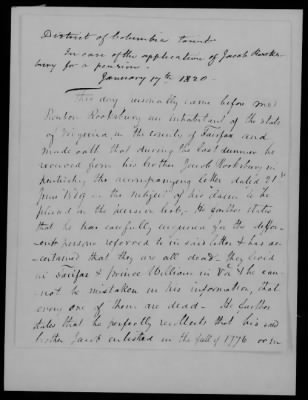 District of Columbia to wit
In case of the application of Jacob Rooks
bury for a pension.
January 17th 1820 -
This day personally came before me
Rooksbury an inhabitant of the state
of Virginia in the county of Fairfax and
made oath that during the last summer he
received from his brother Jacob Rooksbury in
the accompanying letter dated 21st
June 1819 on the subject of his claim to be
placed on the pension list. He further states
that he has carefully enquired for the differ-
ent persons referred to in said letter & has as-
certained that they are all dead - they lived
in Fairfax & Prince William in Va. & he can-
not be mistaken in his information, that
every one of them are dead - He further
states that he perfectly recollects that his said
brother Jacob enlisted in the fall of 1776 or in